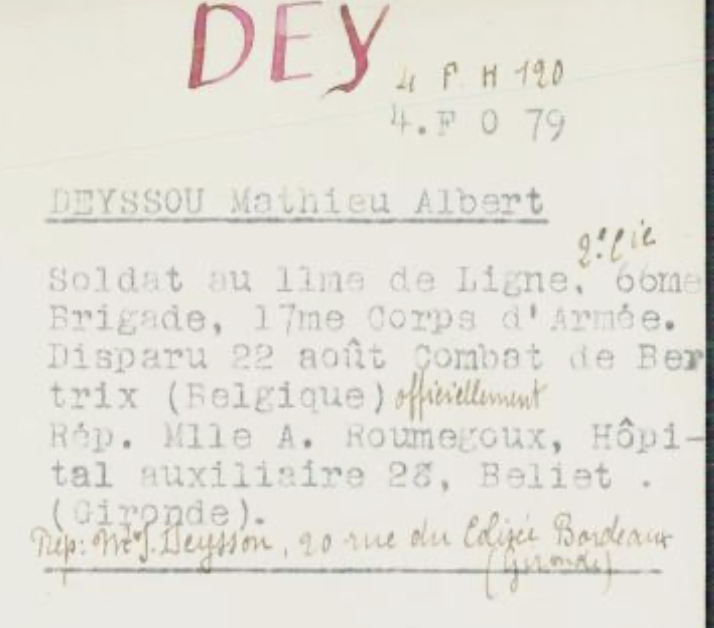 DEY
4 F H 190
4.F O 79
DEYSSOU Mathieu Albert
2e Cie
Soldat au 11me de Ligne, 66me
Brigade, 17me Corps d'Armée.
Disparu 22 août Combat de Ber
trix (Belgique) officiellement
Rép. Mlle A. Roumegoux, Hôpi-
tal auxiliaire 28, Beliet .
(Gironde).
Rép: J. Deysson, 20 rue du Colisée Bordeaux
(Gironde)